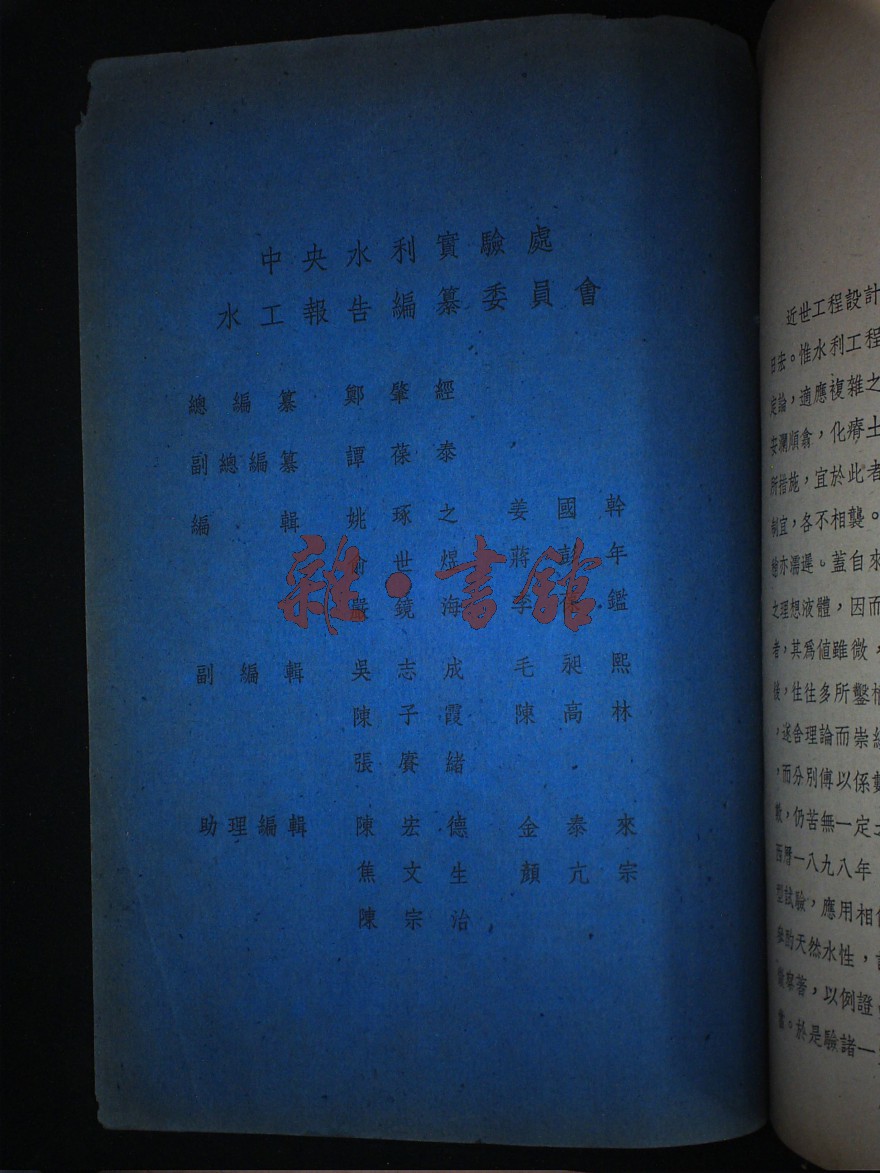 中央水利實驗處
水工報告編纂委員會
總編纂 鄭肇經
副總編纂 譚葆泰
編輯 姚琢之 姜國幹
俞世煜 蔣彭年
嚴鏡海 李 鑑
副編輯 吳志成 毛昶熙
陳子霞 陳高林
張賡緒
助理編輯 陳宏德 金泰來
焦文生 顏亢宗
陳宗治
雜·書館
近世工程設計
日宏。惟水利工程
定論,適應複雜之
安瀾順翕,化瘠土
所措施,宜於此者
制宜,各不相襲。
亦濡遲。蓋自來
之理想液體,因而
者,其爲値雖微,
後,往往多所鑿枘
,遂舍理論而崇
,而分別傅以係數
數,仍苦無一定之
西曆一八九八年
型試驗,應用相
參助天然水性,
,以例證
。於是驗諸一